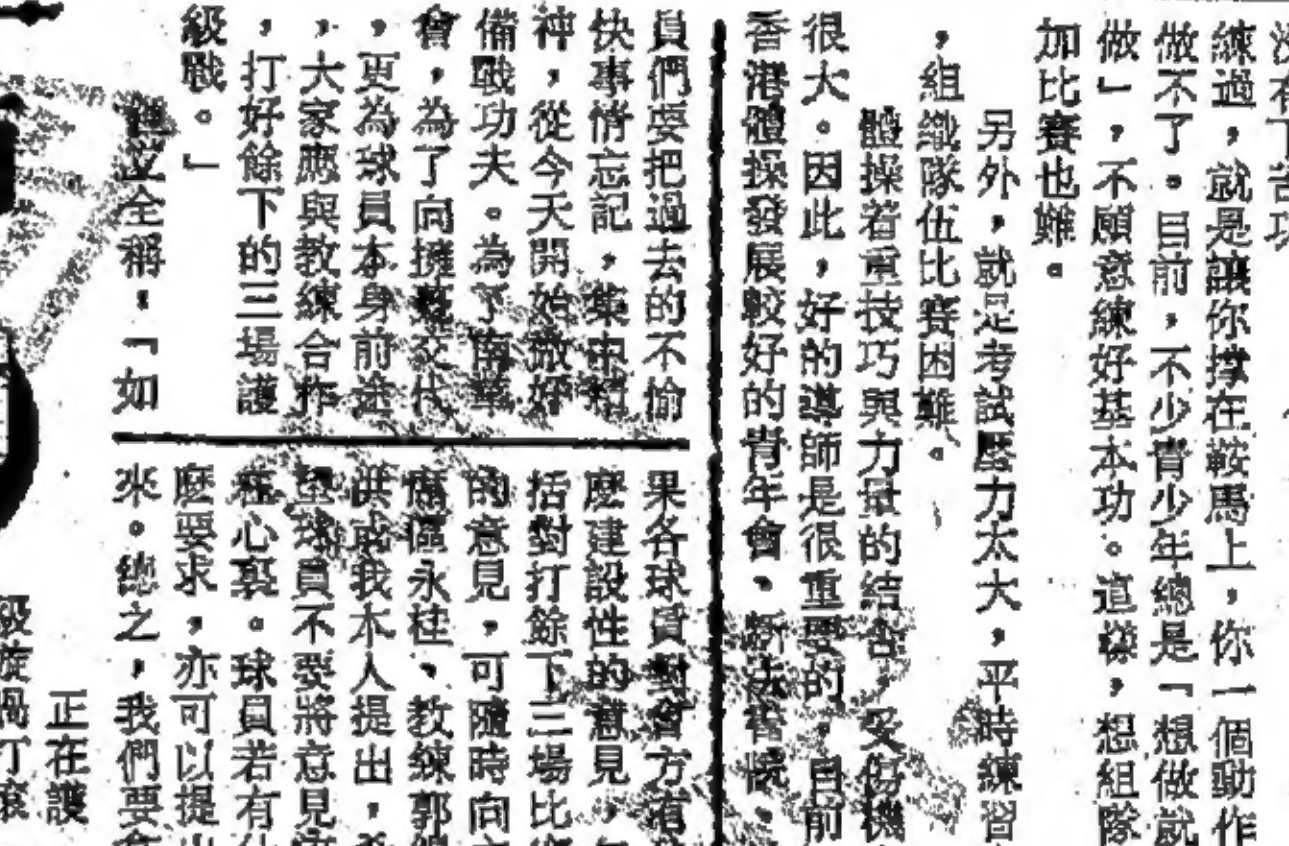 沒有下苦功
練過，就是讓你撑在鞍馬上，你一個動作
做不了。目前，不少青少年總是「想做就
做」，不願意練好基本功。這樣，想組隊
加比賽也難。
另外，就是考試壓力太大，平時練習
，組織隊伍比賽困難。
體操着重技巧與力量的結合，受傷機
很大。因此，好的導師是很重要的，目前
香港體操發展較好的青年會、
員們要把過去的不愉
快事情忘記，集中精
神，從今天開始做好
備戰功夫。為了南華
會，為了向擁躉交代
，更為球員本身前途
，大家應與教練合作
，打好餘下的三場護
級戰。」
全稱：「如
果各球員對會方有
麼建設性的意見，
括對打餘下三場比
的意見，可隨時向
區永柱、教練郭
我本人提出，
望球員不要將意見
在心裏。球員若有
麼要求，亦可以提
來。總之，我們要
正在護
級旋渦打滾